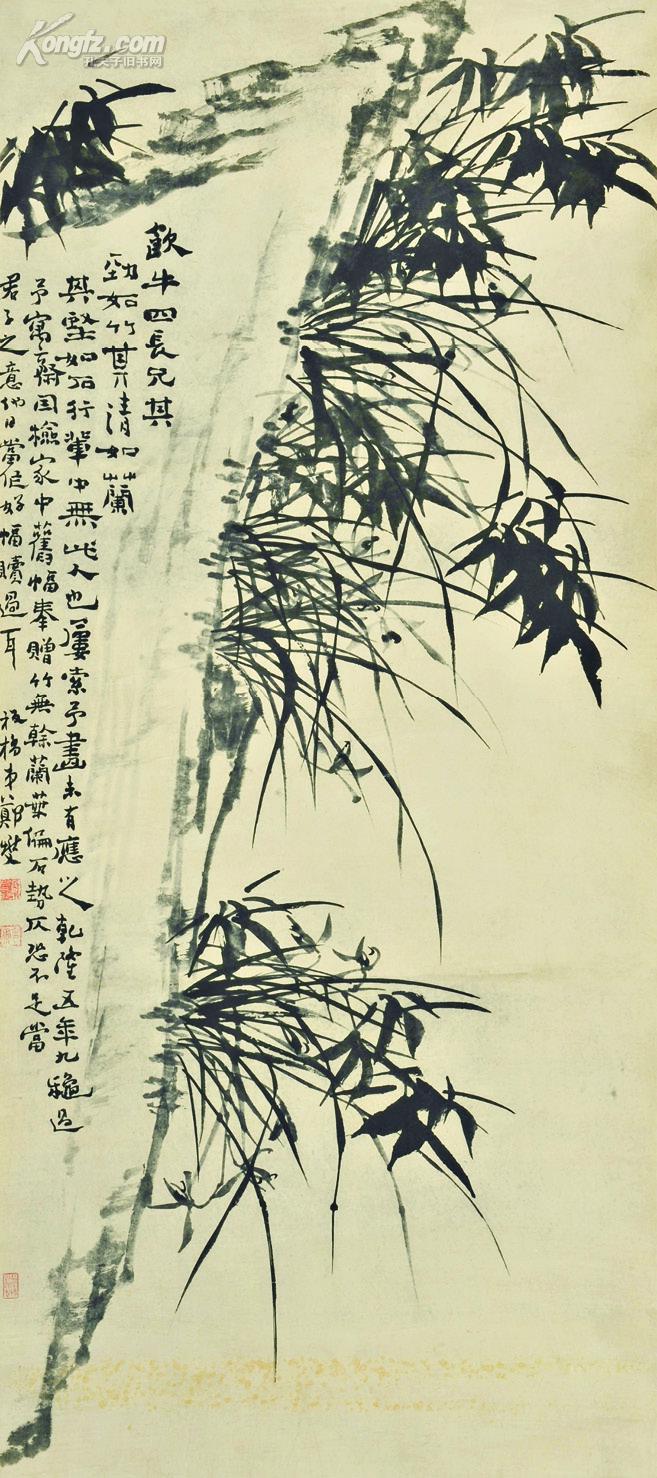 Kongfz.com
孔夫子旧书网
飲牛四長兄其
勁如竹其清如蘭
其堅如石行輩中無此人也屢索予畫未有應之乾隆五年九穐過
予寓齋因檢家中舊幅奉贈竹無幹蘭葉偏石勢仄恐不足當
君子之意他日當作好幅贖過耳 板橋弟鄭燮